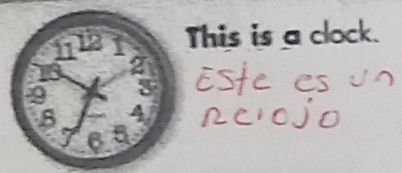 12
1
2
3
4
5
6
7
8
9
10
11
This is a clock.
Este es un
relojo